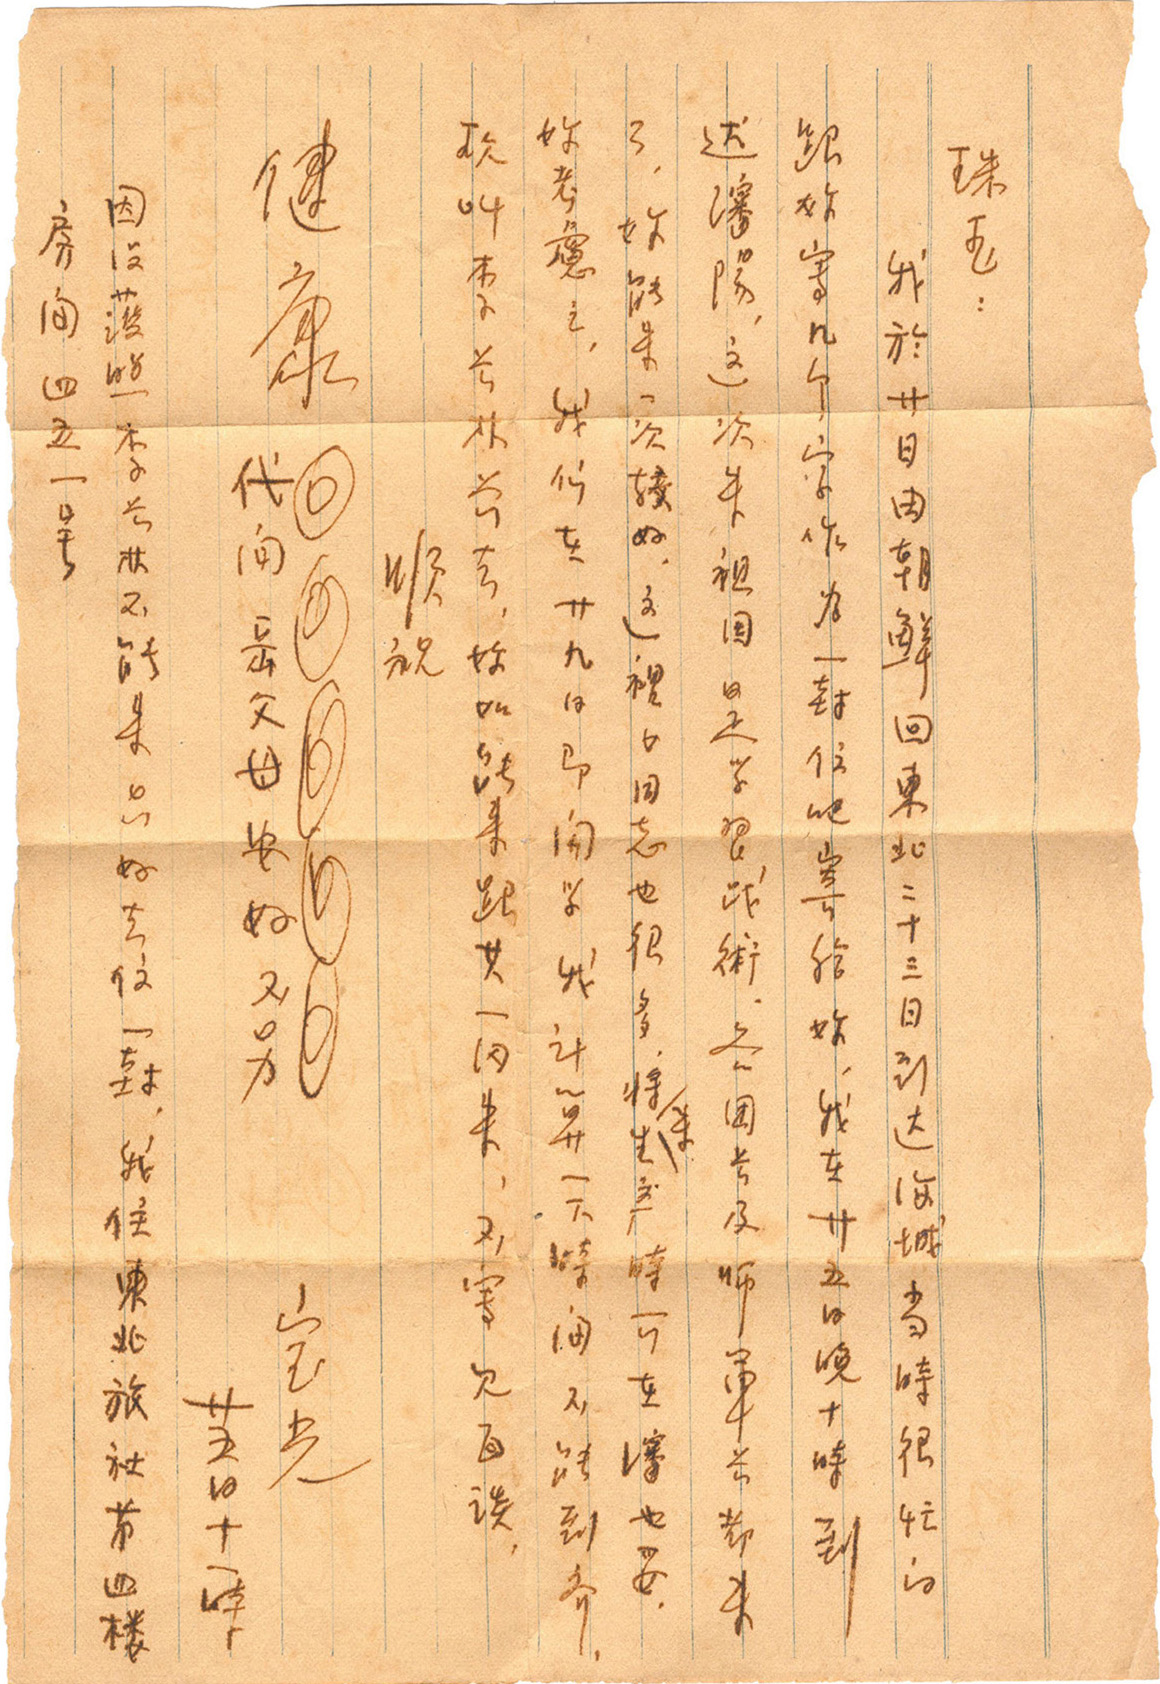 珠玉：
我於廿日由朝鮮回東北二十三日到达海城当時很忙的
跟妳寫几个字作为一封信吧寄给妳，我在廿五日晚十時到
达瀋陽，这次来祖国是学習战術，各国长及师軍长都来
了，妳能来一次較好，这裡女同志也很多，将来生产時可在瀋也要，
妳考慮之，我们在廿九日即開学我計算一下時间不能到
現叫李长林前去，妳如能来跟其一同来，不寫見面談，
順祝
健康
代问岳父母安好 不另
宝光
廿五日十一時
因没護照李长林不能来只好去信一封，我住東北旅社第四楼
房间四五一号